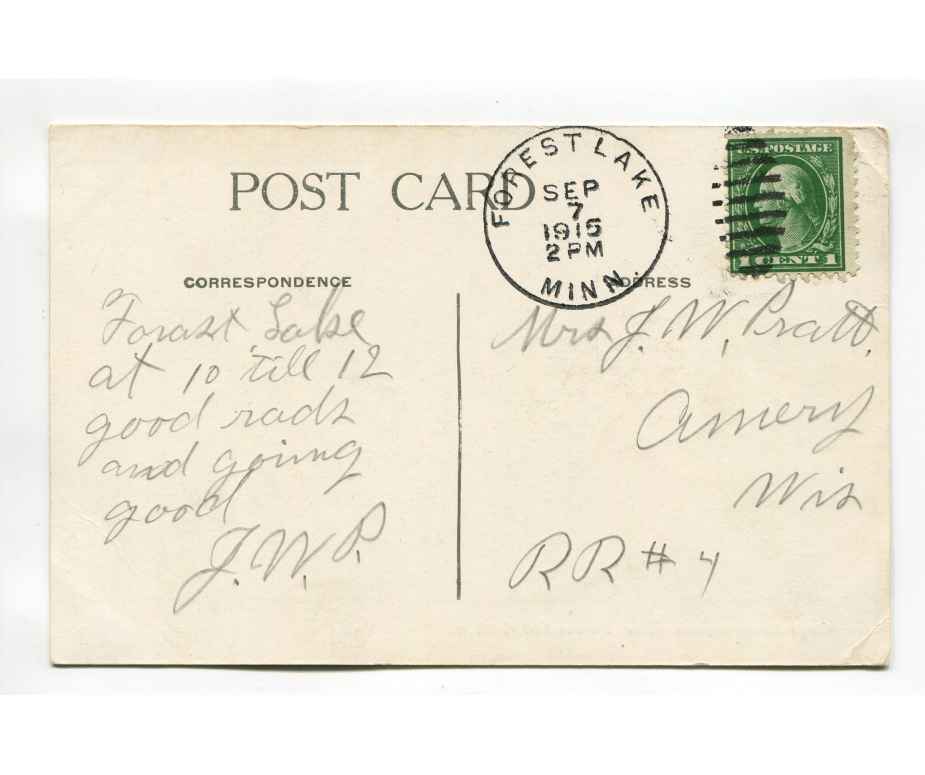 POST CARD
FOREST LAKE
SEP
7
1915
2 PM
MINN.
U.S. POSTAGE
1 CENT 1
CORRESPONDENCE
ADDRESS
Forast Lake
at 10 till 12
good rads
and going
good
J.W.P.
Mrs J. W. Pratt.
Amery
Wis
RR # 4